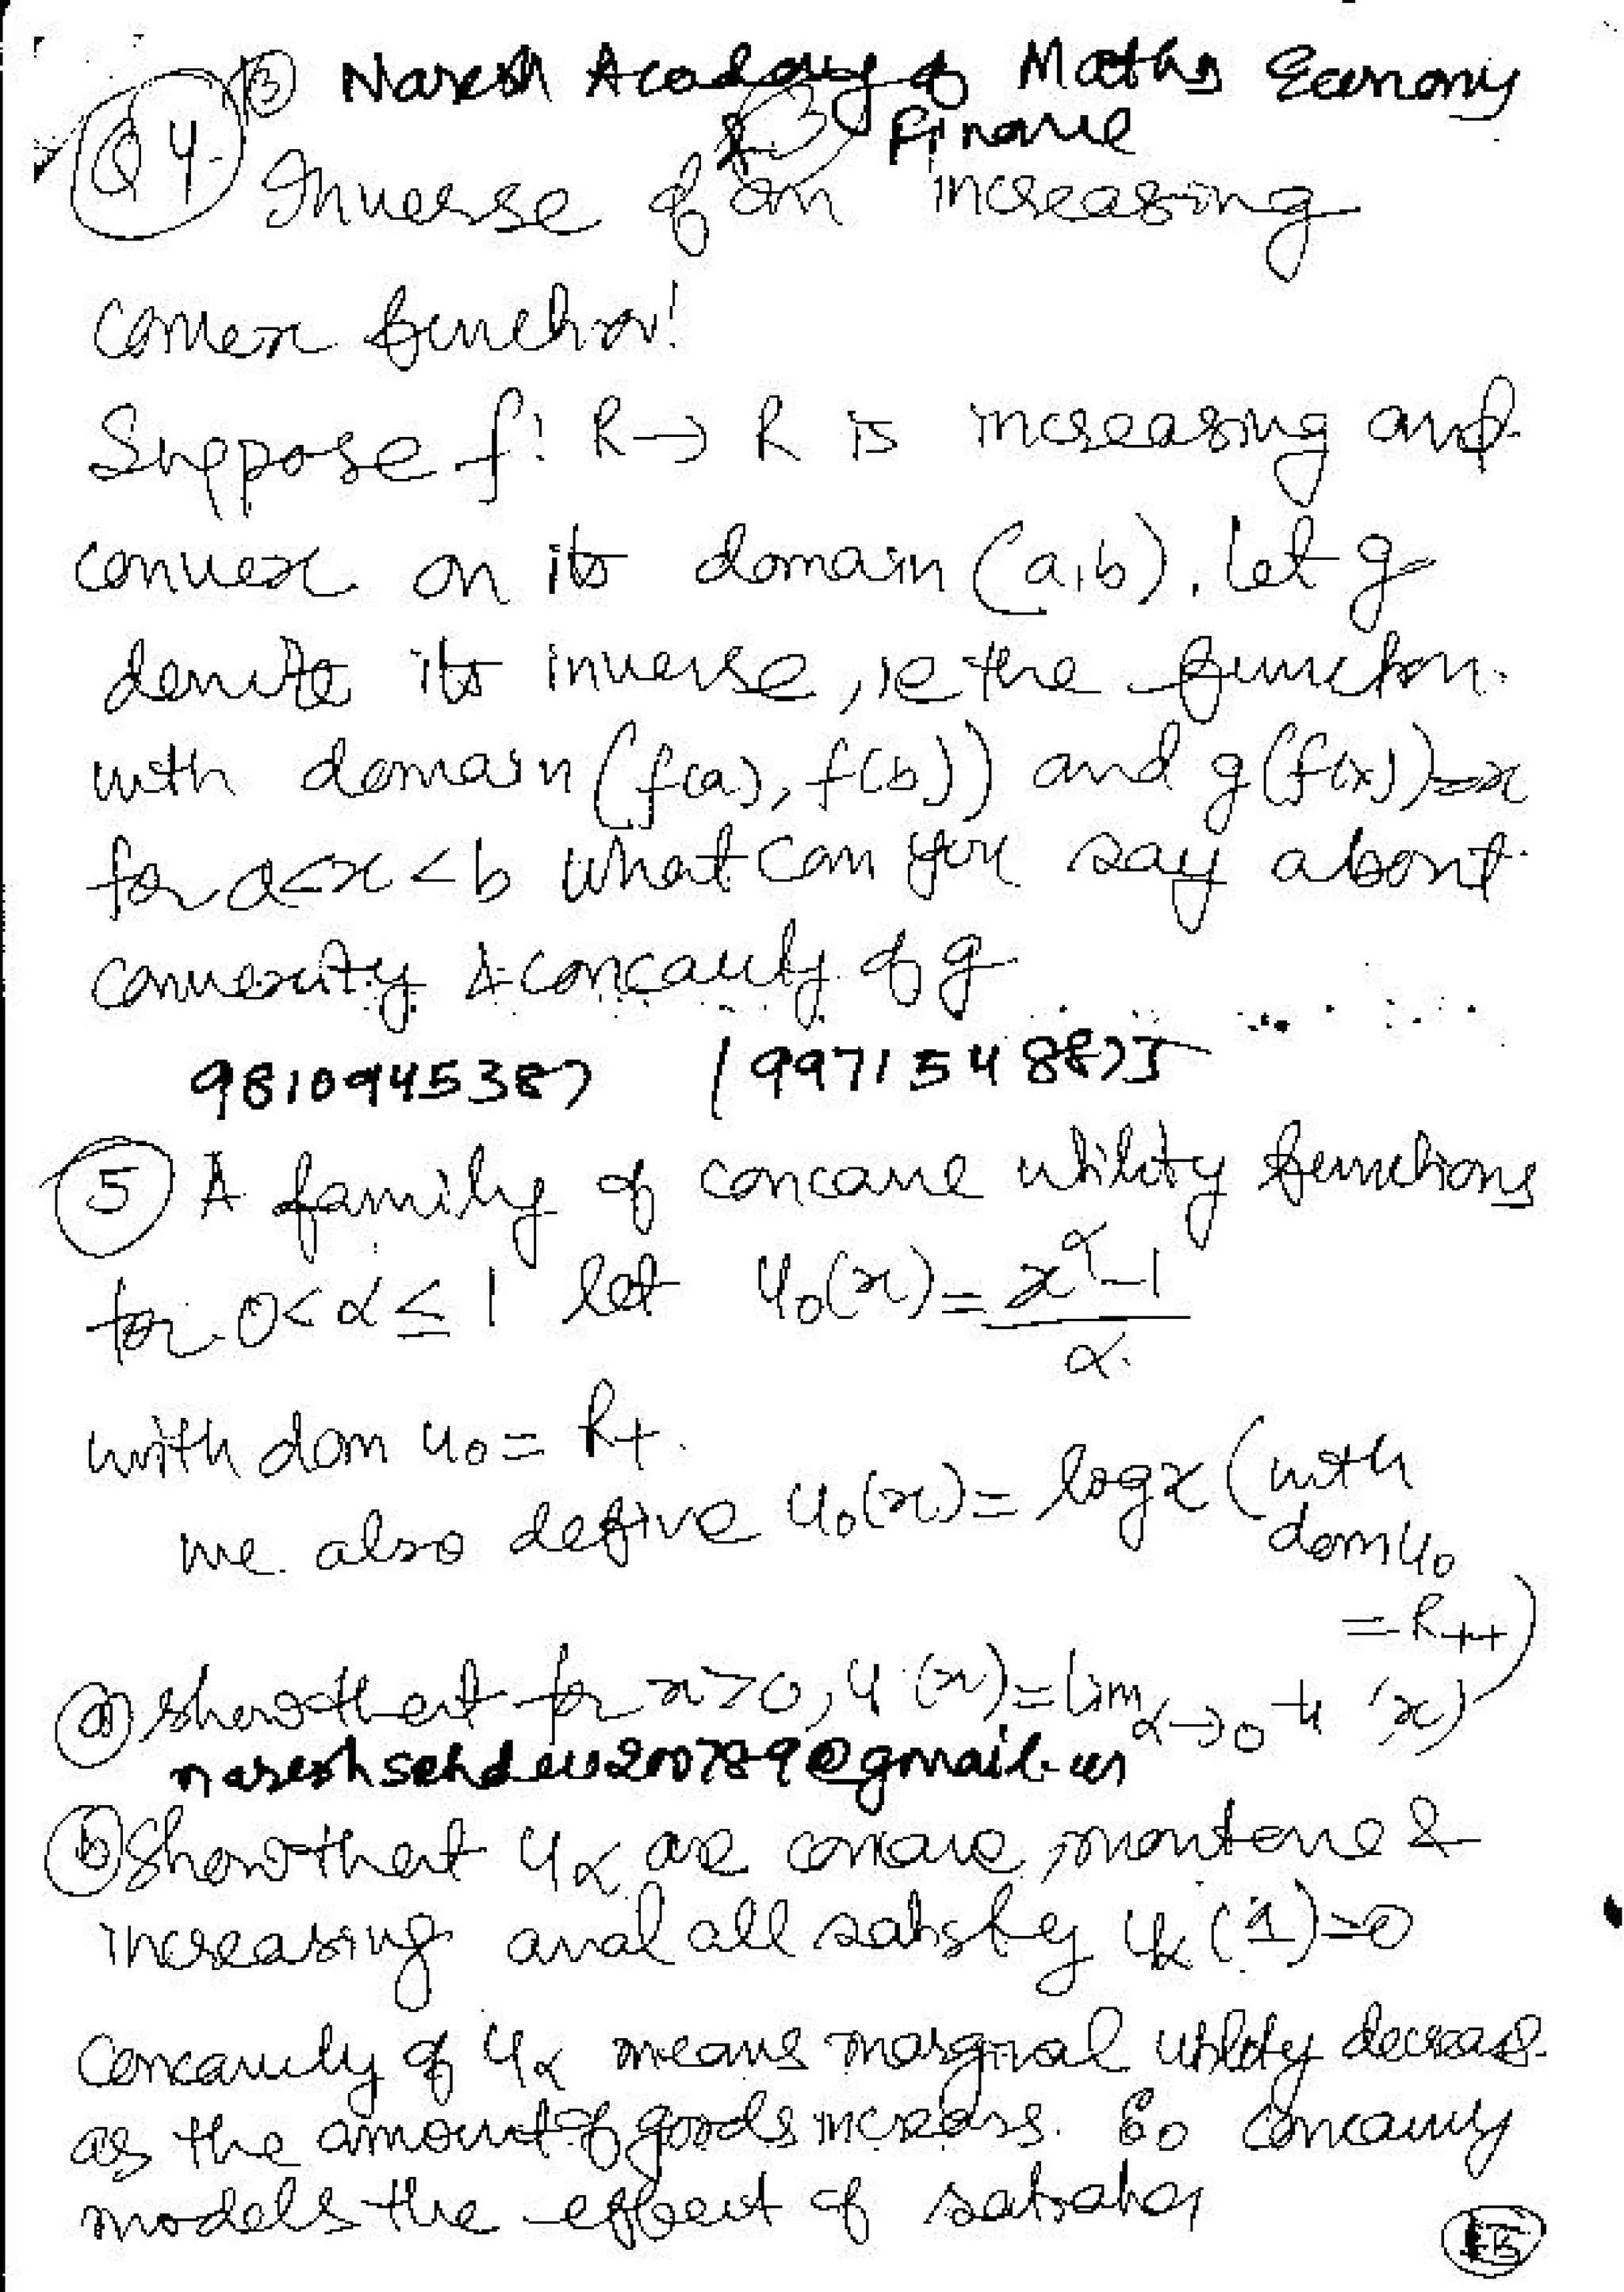 ③ Naresh Academy of Maths Economy
Finance
Q4. Inverse of an increasing
convex function!
Suppose f: R→ R is increasing and
convex on its domain (a,b). Let g
denote its inverse, ie the function
with domain (f(a), f(b)) and g(f(x))=x
for a<x<b what can you say about
convexity & concavity of g
9810945387 / 9971548875
⑤ A family of concave utility functions
for 0<α≤1 let u₀(x)= (x^α-1)/α
with dom u₀= R+.
we also define u₀(x)= log x (with
dom u₀
= R++)
ⓐ show that for x>0, u (x)=lim α→0 u (x)
nareshsehdev200789@gmail.
ⓑ Show that uα are concave, montone &
increasing and all satisfy uα(1)=0
Concavity of uα means marginal utility decreas
as the amount of goods increas. So Concavity
models the effect of satiation